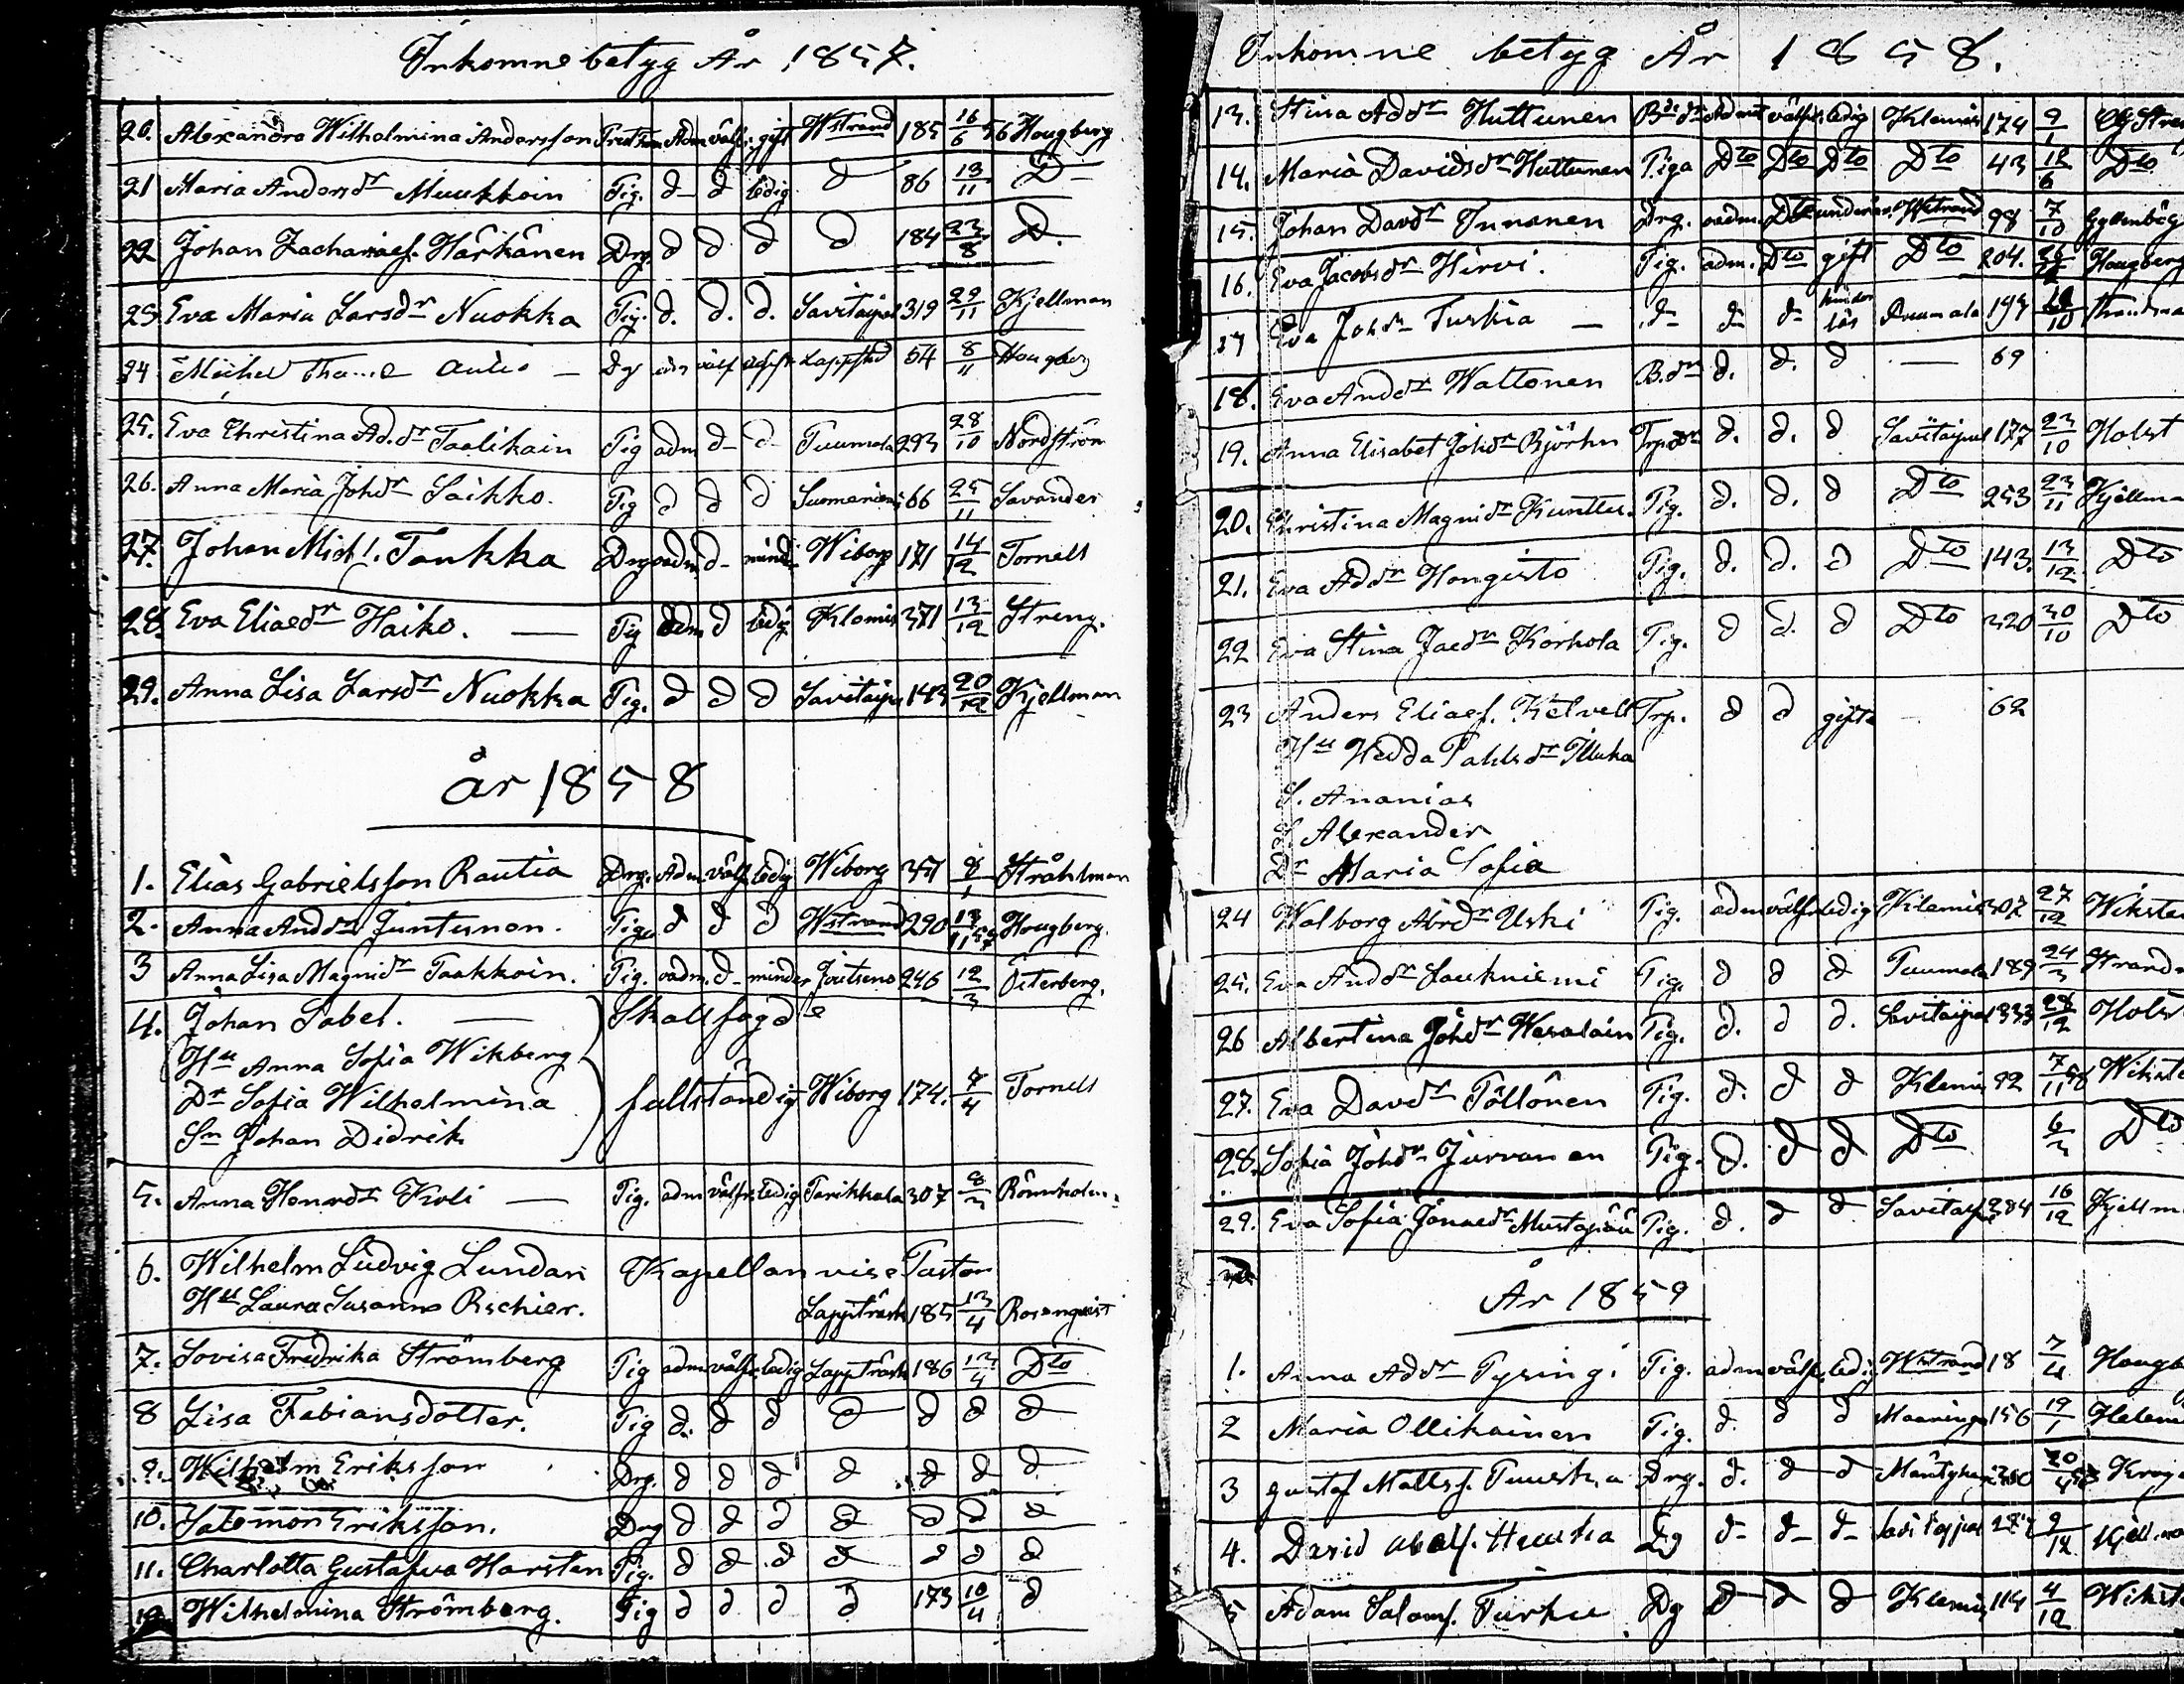 Inkomne betyg År 1857.
20. Alexandra Wilhelmina Andersson Adm välf. gift Wstrand 185 16/6 56 Hougberg
21 Maria Andersdr Muukkoin Pig. d d ledig d 86 13/11 D
22 Johan Zachariaes. Härkänen Drg. d d d d 184 23/8 D.
23. Eva Maria Larsdr Nuokka Pig. d. d. d. Savitaipal 319 29/11 Kjellman
24 Michel Dg välf 54 8/11 Hougberg
25. Eva Christina Ad.dr Taalikain Pig adm d d Puumala 293 28/10 Nordström
26. Anna Maria Johdr Saikko. Pig d d d Suomenniemi 66 25/11 Savander
27. Johan Mich s. Tankka Drg oadm d- mindr Wiborg 171 14/12 Tornell
28. Eva Eliaedr Haiko. — Pig adm d ledig Klemis 371 13/12 Streng.
29. Anna Lisa Larsdr Nuokka Pig. d d d Savitaipa 143 20/12 Kjellman
år 1858
1. Elias Gabrielsson Rautia Drg. Adm välf ledig Wiborg 351 8/1 Stråhlman
2. Anna Anddr Juntunen. Piga d d d Wstrand 290 13/11 57 Hougberg.
3 Anna Lisa Magnidr Taakkoin. Pig. oadm. d- minder Joutseno 246 12/3 Österberg.
4. Johan Sabel. — Skallfogde
Hu Anna Sofia Wikberg
Dr Sofia Wilhelmina fullständig Wiborg 174. 7/4 Tornell
Sn Johan Didrik
5. Anna Henrdr Koli — Pig. adm välfr. ledig Parikkala 307 8/3 Rönnholm.
6. Wilhelm Ludvig Lundan Kapellan vise Pastor
Hu Laura Susanna Rschier. Lappträsk 185 13/4 Rosenqvist
7. Lovisa Fredrika Strömberg Pig adm välfr ledig Lappträsk 186 13/4 Dto
8 Lisa Fabiansdotter. Pig d. d d d d d d
9. Wilhelm Eriksson Drg. d d d d d d d
10. Salomon Eriksson. Drg d d d d d d d
11. Charlotta Gustafva Karsten Pig. d d d d d d d
12 Wilhelmina Strömberg. Pig d d d d 173 10/4 d
Inkomne betyg År 1858.
13. Stina Addr Huttunen Admt välfr ledig Klemis 174 9/1
14. Maria Davidsdr Huttunen Piga Dto Dto Dto Dto 43 12/6 Dto
15. Johan Davdr Innanen Drg. oadm. Dto Wstrand 98 7/10
16. Eva Jacobsdr Hirvi. Pig. adm. Dto gift Dto 204. Hougberg
17 Eva Johdr Turkia — d- d- d- hindar lös Puumala 193 12/10
18. Eva Anddr Waltonen B.dr d. d. d — 69
19. Anna Elisabet Johdr Björkn Trp.dr d. d. d Savitaipal 177 23/10 Holst
20. Christina Magnidr Kunttu. Pig. d. d. d Dto 253 23/11 Kjellma
21. Eva Addr Hongisto Pig. d. d. d Dto 143. 13/12 Dto
22 Eva Stina Jaedr Korhola Pig. d d. d Dto 320 30/10 Dto
23 Anders Eliaes. Ketvell Trp. d d gifte — 62
Hu Hedda Pahlsdr Iluka
S. Ananias
S Alexander
Dr Maria Sofia
24 Walborg Abrdr Uski Pig. adm välfr ledig Klemis 307 27/12 Wikste
25. Eva Anddr Laukniemi Pig. d d d Puumala 189 24/3 Strand
26 Albertina Johdr Wasalain Pig. d. d d. Savitaipal 333 28/12 Holst
27. Eva Davdr Pöllönen Pig. d. d d Klemis 92 7/11 58 Wikste
28. Sofia Johdr Jurvanen Pig. d. d d Dto 6/3 Dto
29. Eva Sofia Jonaedr Mustapää Pig. d. d d Savitaip 284 16/12 Kjellm
År 1859
1. Anna Addr Pysing Pig. adm välfr ledig Wstrand 18 7/4 Hougb
2 Maria Ollikainen Pig. d. d d Maaninga 156 19/1 Helen
3 Gustaf Mattss. Puuska Drg. d. d d Mäntyhar 20/4 Krog
4. David Dg d- d- d- Savitaipal 9/12 Kjellm
5 Adam Saloms. Turku Dg d d d Klemis 114 4/12 Wikst